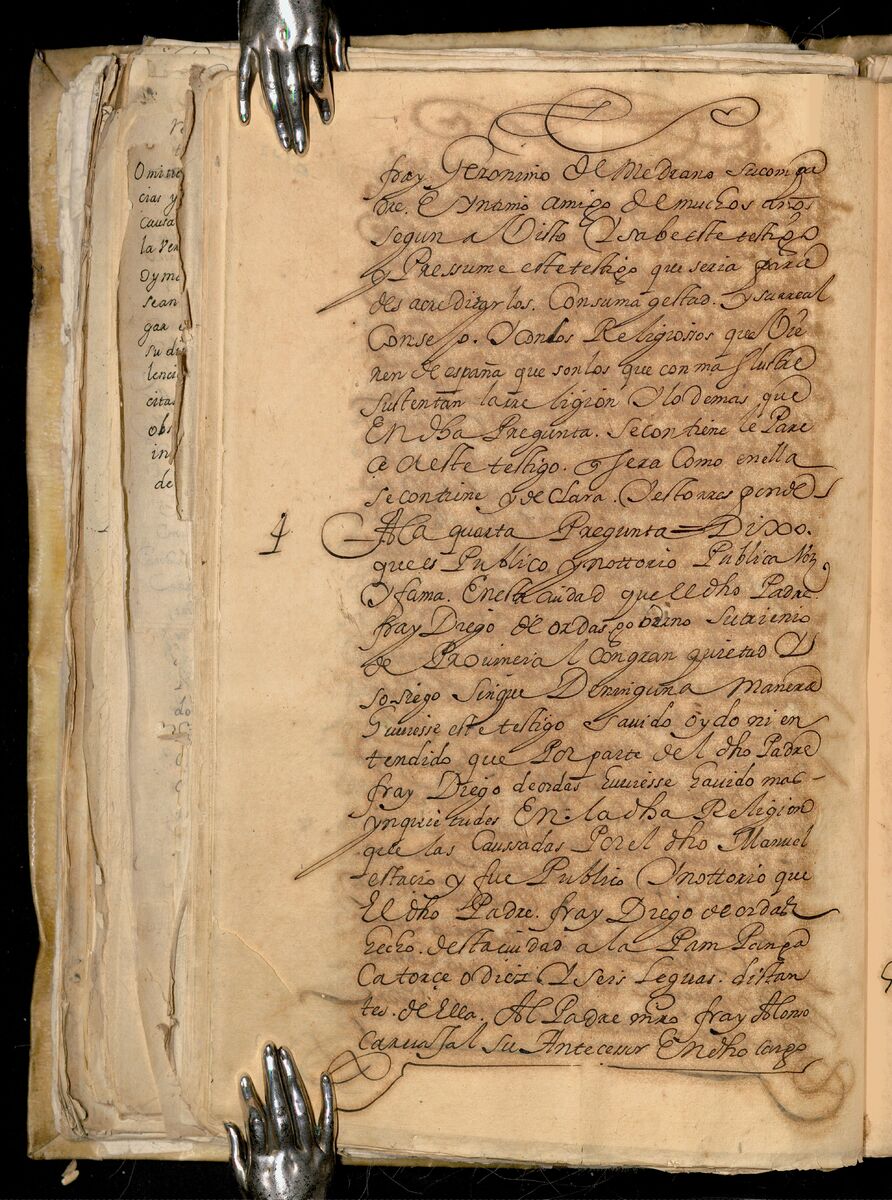 Omitie
cias y
Causa
la Ver
Oyme
sean
gar e
su di
lenci
cita
obs
in
de
fray Geronimo de Medrano su compa
dre. E yntimo amigo de muchos años
segun a Visto Y sabe este testigo
y Pressume este testigo que seria para
desacreditarlos. Con su magestad. Y su rreal
Consejo. Y con los Religiosos que Vie
nen de españa que son los que con mas lustre
sustentan la rreligion Y lo demas que
En dha Pregunta. Se contiene le Pare
çe a este testigo. Y sera Como en ella
se contiene y declara. Y esto rresponde
4
A la quarta Pregunta = Dixo.
que es Publico y nottorio Publica Voz
Y fama. En esta ciudad que el dho Padre.
fray Diego de ordas governo su trienio
de Provincial con gran quietud Y
sosiego sin que De ninguna Manera
huviesse este testigo havido oydo ni en
tendido que Por parte del dho Padre
fray Diego de ordas huviesse havido mas
ynquietudes En la dha Religion
que las Caussadas Por el dho Manuel
estacio y fue Publico Y nottorio que
El dho Padre. fray Diego de ordas
hecho. desta ciudad a la Pampanga
Catorçe o diez Y seis Leguas. distan
tes. de Ella. Al Padre mro fray Alonso
Carvajal su Antecesur En dho cargo